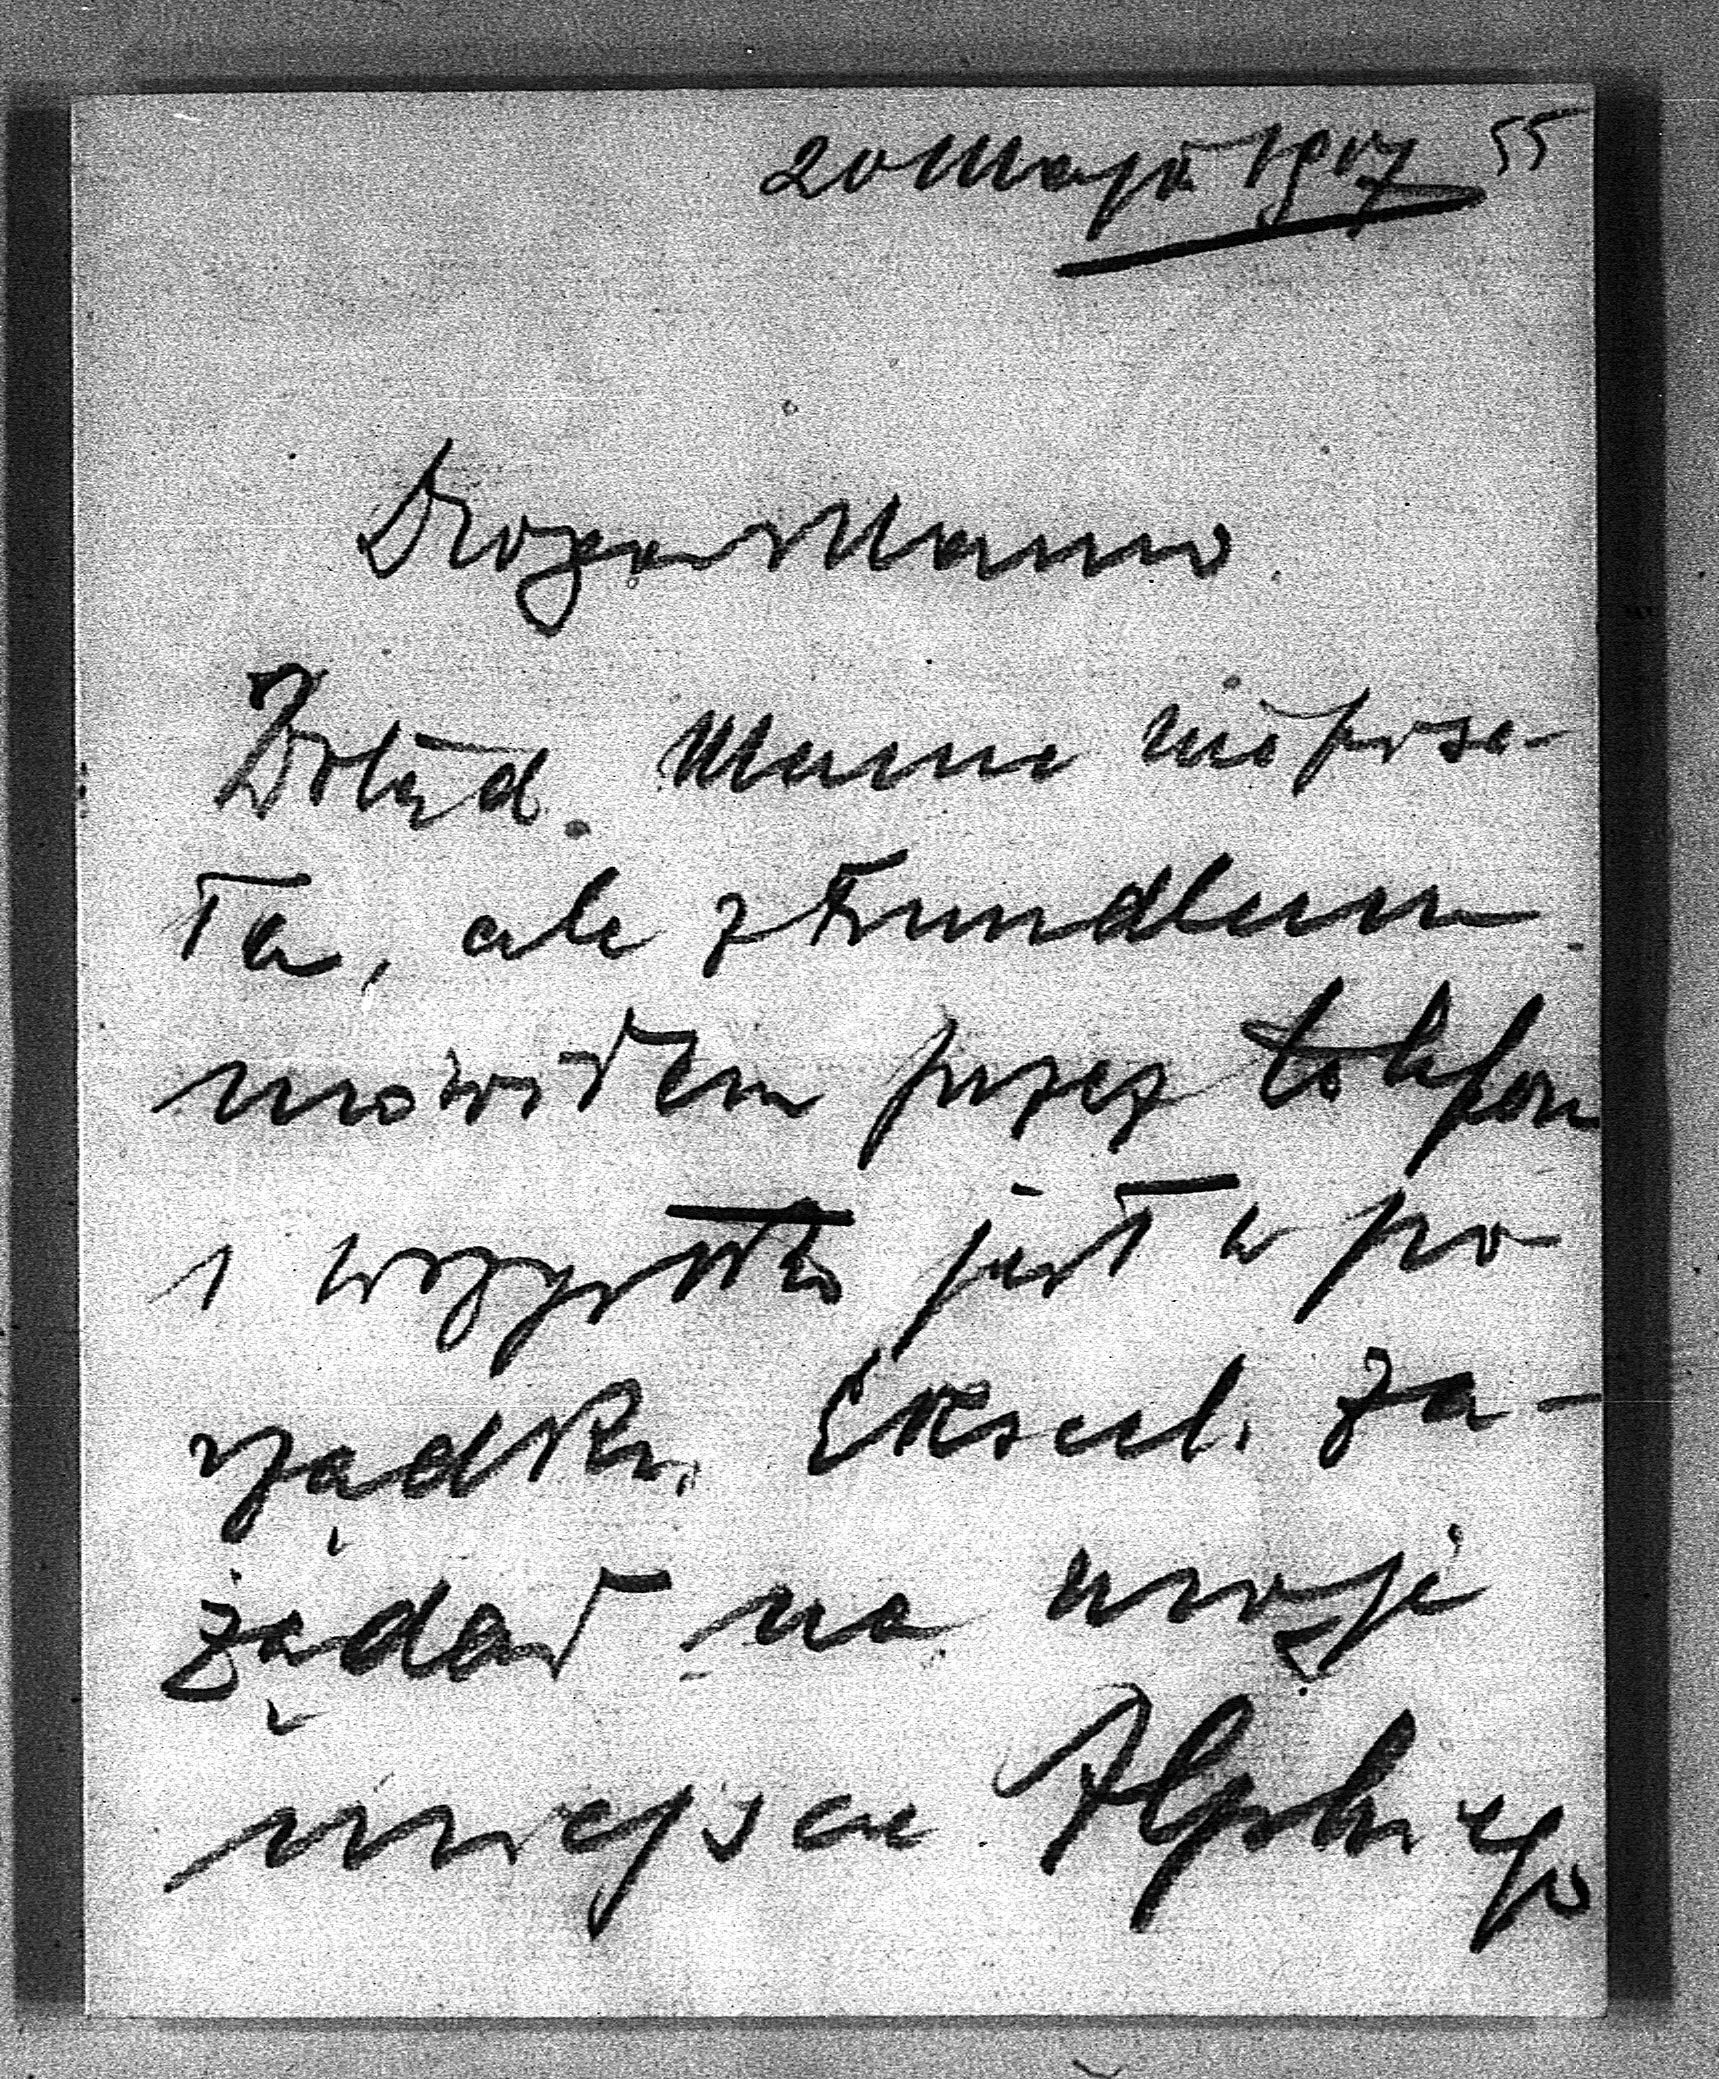 20 Maja 1907 55
Droga Mamo.
Dotąd. Mama nie posa-
ła, ale z Frundlem
mówiłem przez telefon
i wszystko jest w po
rządku. Ekscel. za-
żądał na moje
miejsce